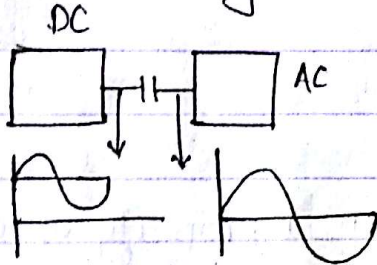 DC
AC